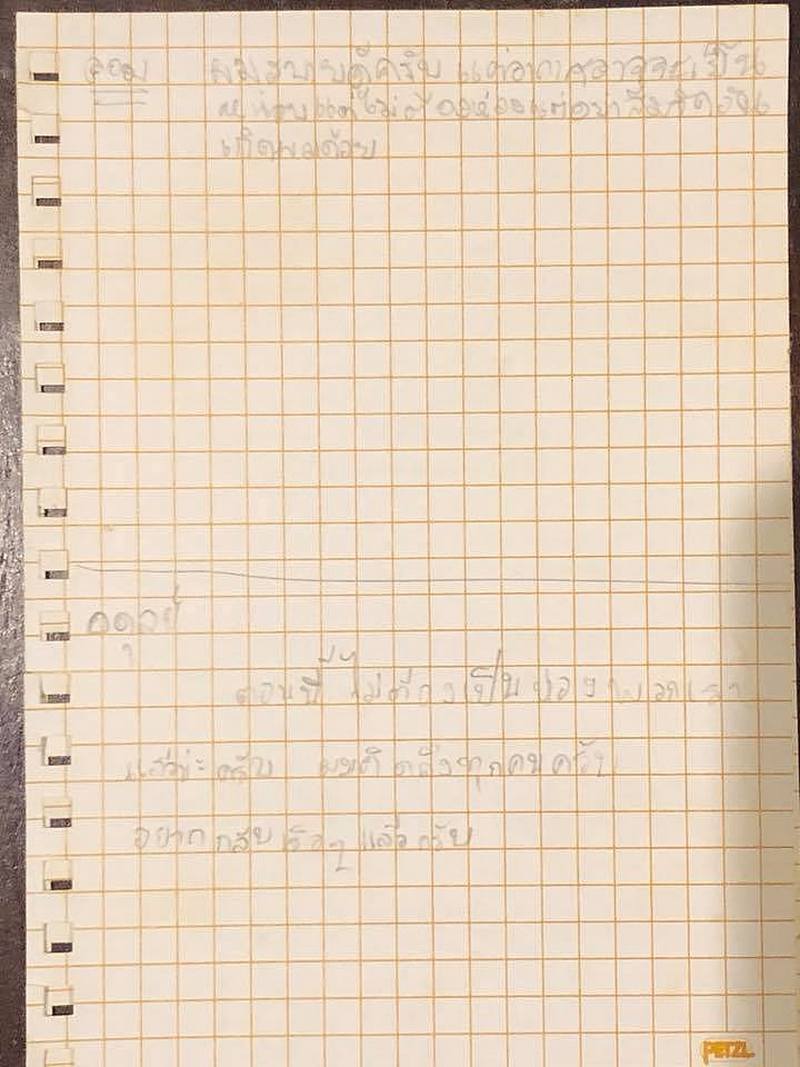 ดอม ผมสบายดีครับ แต่อากาศอาจจะเย็น
หน่อยแต่ไม่ต้องห่วงแต่อย่าลืมจัดวัน
เกิดผมด้วย
อดุลย์
ตอนนี้ ไม่ต้องเป็นห่วงพวกเรา
แล้วนะครับ ผมคิดถึงทุกคนครับ
อยากกลับเร็วๆ แล้วครับ
PETZL